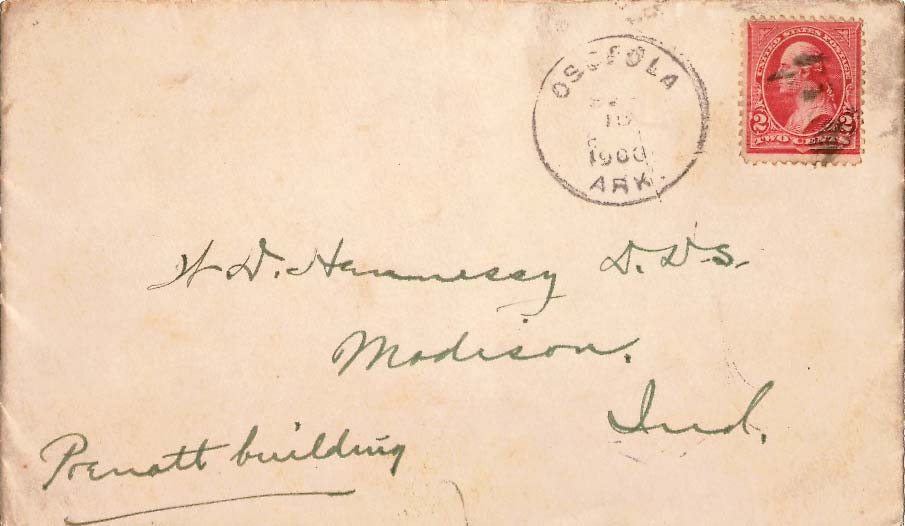 OSCEOLA
19
1900
ARK.
UNITED STATES POSTAGE
2 2
TWO CENTS
W D. Hennessy D.D.S.
Madison.
Ind.
Prenatt building